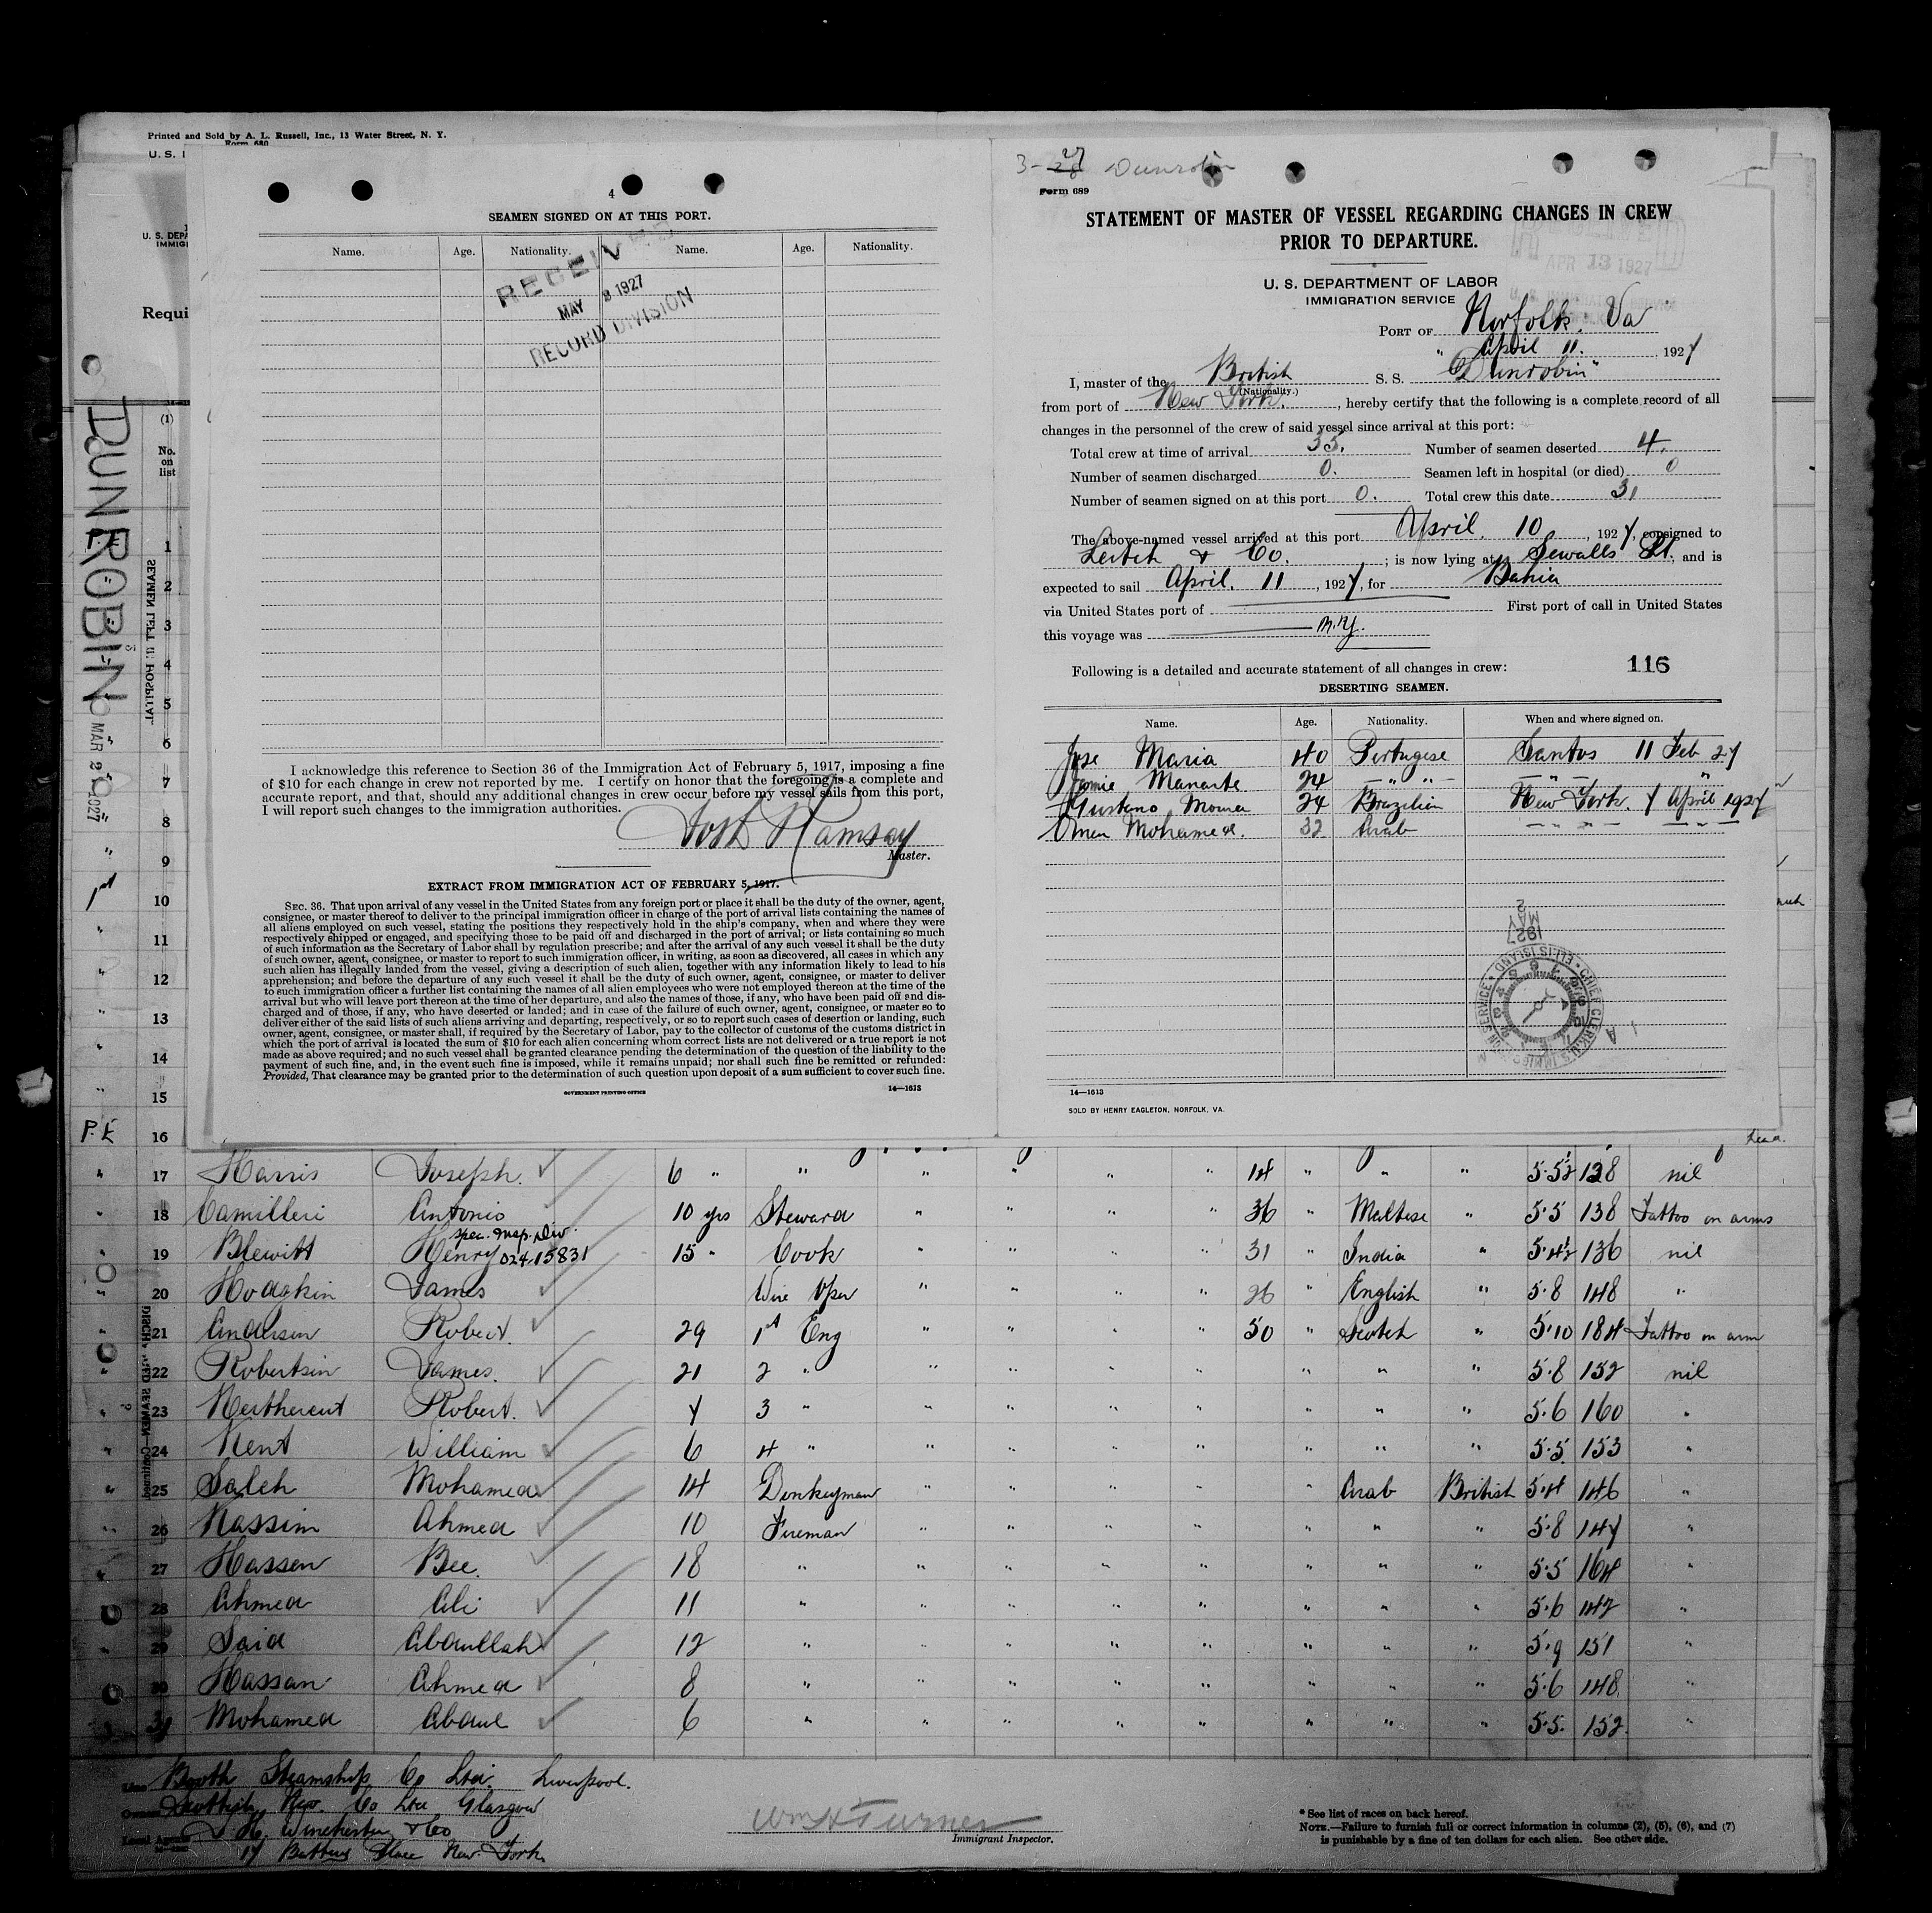 Printed and Sold by A. L. Russell, Inc., 13 Water Street, N. Y.
Form 680
U. S. I
U. S. DEPA
IMMIG
Requi
(1)
No.
on
list
DUNROBIN
MAR 2 1927
P.E
1
2
3
4
5
6
7
8
9
10
11
12
13
14
15
P.E 16
SEAMEN LEFT IN HOSPITAL
4
SEAMEN SIGNED ON AT THIS PORT.
Name. Age. Nationality. Name. Age. Nationality.
RECEIVED
MAY 3 1927
RECORD DIVISION
I acknowledge this reference to Section 36 of the Immigration Act of February 5, 1917, imposing a fine
of $10 for each change in crew not reported by me. I certify on honor that the foregoing is a complete and
accurate report, and that, should any additional changes in crew occur before my vessel sails from this port,
I will report such changes to the immigration authorities.
Ramsay
Master.
EXTRACT FROM IMMIGRATION ACT OF FEBRUARY 5, 1917.
SEC. 36. That upon arrival of any vessel in the United States from any foreign port or place it shall be the duty of the owner, agent,
consignee, or master thereof to deliver to the principal immigration officer in charge of the port of arrival lists containing the names of
all aliens employed on such vessel, stating the positions they respectively hold in the ship's company, when and where they were
respectively shipped or engaged, and specifying those to be paid off and discharged in the port of arrival; or lists containing so much
of such information as the Secretary of Labor shall by regulation prescribe; and after the arrival of any such vessel it shall be the duty
of such owner, agent, consignee, or master to report to such immigration officer, in writing, as soon as discovered, all cases in which any
such alien has illegally landed from the vessel, giving a description of such alien, together with any information likely to lead to his
apprehension; and before the departure of any such vessel it shall be the duty of such owner, agent, consignee, or master to deliver
to such immigration officer a further list containing the names of all alien employees who were not employed thereon at the time of the
arrival but who will leave port thereon at the time of her departure, and also the names of those, if any, who have been paid off and dis-
charged and of those, if any, who have deserted or landed; and in case of the failure of such owner, agent, consignee, or master so to
deliver either of the said lists of such aliens arriving and departing, respectively, or so to report such cases of desertion or landing, such
owner, agent, consignee, or master shall, if required by the Secretary of Labor, pay to the collector of customs of the customs district in
which the port of arrival is located the sum of $10 for each alien concerning whom correct lists are not delivered or a true report is not
made as above required; and no such vessel shall be granted clearance pending the determination of the question of the liability to the
payment of such fine, and, in the event such fine is imposed, while it remains unpaid; nor shall such fine be remitted or refunded:
Provided, That clearance may be granted prior to the determination of such question upon deposit of a sum sufficient to cover such fine.
GOVERNMENT PRINTING OFFICE 14—1613
3-27 Dunrobin
Form 689
STATEMENT OF MASTER OF VESSEL REGARDING CHANGES IN CREW
PRIOR TO DEPARTURE.
APR 13 1927
U. S. DEPARTMENT OF LABOR
IMMIGRATION SERVICE
PORT OF Norfolk. Va
" April 11. 1927
I, master of the British S. S. "Dunrobin"
(Nationality.)
from port of New York., hereby certify that the following is a complete record of all
changes in the personnel of the crew of said vessel since arrival at this port:
Total crew at time of arrival 35. Number of seamen deserted 4.
Number of seamen discharged 0. Seamen left in hospital (or died) 0
Number of seamen signed on at this port 0. Total crew this date 31
The above-named vessel arrived at this port April. 10, 1927, consigned to
Leitch & Co.; is now lying at Sewalls Pt, and is
expected to sail April. 11, 1927, for Bahia
via United States port of First port of call in United States
this voyage was N.Y.
Following is a detailed and accurate statement of all changes in crew: 116
DESERTING SEAMEN.
Name. Age. Nationality. When and where signed on.
Jose Maria 40 Portugese Santos 11 Feb 27
Jamie Manante 24 " " " "
Gusteno Momer 24 Brazilian New York. 7 April 1927
Omer Mohamed. 32 Arab " " "
1927
MAY
2
CHIEF CLERK U.S. IMMIGRATION SERVICE • ELLIS ISLAND
14—1613
SOLD BY HENRY EAGLETON, NORFOLK, VA.
" 17 Harris Joseph. 6 " " " " " " 14 " " " 5·5½ 138 nil
" 18 Camilleri Antonio 10 yrs Steward " " " " 36 " Maltese " 5·5 138 Tattoo on arms
Spec. Insp. Div.
" 19 Blewitt Henry 024.15831 15 " Cook " " " " 31 " India " 5·4½ 136 nil
" 20 Hodgkin James Wire Oper " " " " 26 " English " 5·8 148 "
" 21 Anderson Robert. 29 1st Eng " " " " 50 " Scotch " 5·10 184 Tattoo on arm
" 22 Robertson James. 21 2 " " " " " " " " 5·8 152 nil
" 23 Robert. 7 3 " " " " " " " " 5·6 160 "
" 24 Kent William 6 4 " " " " " " " " 5·5. 153 "
" 25 Saleh Mohamed 14 Donkeyman " " " " " Arab British 5·4 146 "
" 26 Nassim Ahmed 10 Fireman " " " " " " " 5·8 147 "
" 27 Hassen Bee. 18 " " " " " " " " 5·5 164 "
28 Ahmed Ali 11 " " " " " " " " 5·6 142 "
" 29 Said Abdullah 12 " " " " " " " " 5·9 151 "
30 Hassan Ahmed 8 " " " " " " " " 5·6 148 "
31 Mohamed Abdul 6 " " " " " " " " 5·5. 152. "
DISCHARGED SEAMEN—Continued
Line Booth Steamship Co Ltd. Liverpool.
Owners Scottish Nav. Co Ltd Glasgow
Local Agents H. Winchester & Co
17 Battery Place New York.
Wm H Turner
Immigrant Inspector.
* See list of races on back hereof.
NOTE.—Failure to furnish full or correct information in columns (2), (5), (6), and (7)
is punishable by a fine of ten dollars for each alien. See other side.